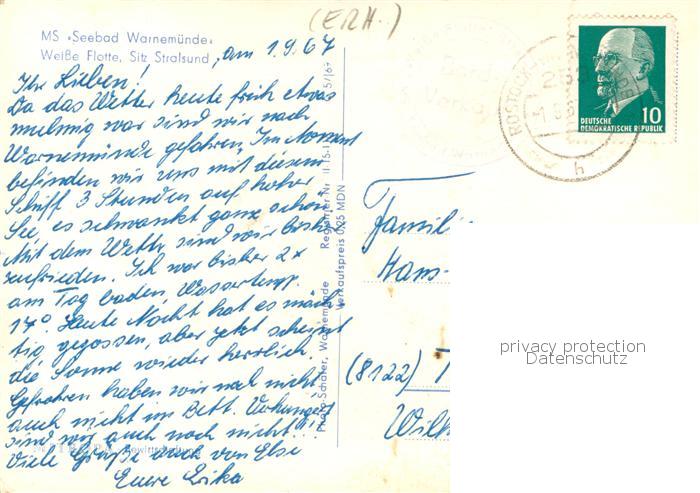 (ERH.)
MS »Seebad Warnemünde«
Weiße Flotte, Sitz Stralsund
am 1.9.67
Ihr Lieben!
Da das Wetter heute früh etwas
mulmig war sind wir nach
Warnemünde gefahren. Im Moment
befinden wir uns mit diesem
Schiff 3 Stunden auf hoher
See, es schwankt ganz schön.
Mit dem Wetter sind wir bisher
zufrieden. Ich war bisher 2x
am Tag baden, Wassertemp.
17°. Heute Nacht hat es mäch-
tig gegossen, aber jetzt scheint
die Sonne wieder herrlich.
Gefroren haben wir noch nicht
auch nicht im Bett. Verhungert
sind wir auch noch nicht!!!
Viele Grüße auch von Else
Eure Erika
Foto-Schäfer, Warnemünde Register-Nr. II-15-1
Verkaufspreis 0,25 MDN
ROSTOCK
h
10
DEUTSCHE
DEMOKRATISCHE REPUBLIK
Famil
Hans-
(8122)
Wilh
privacy protection
Datenschutz